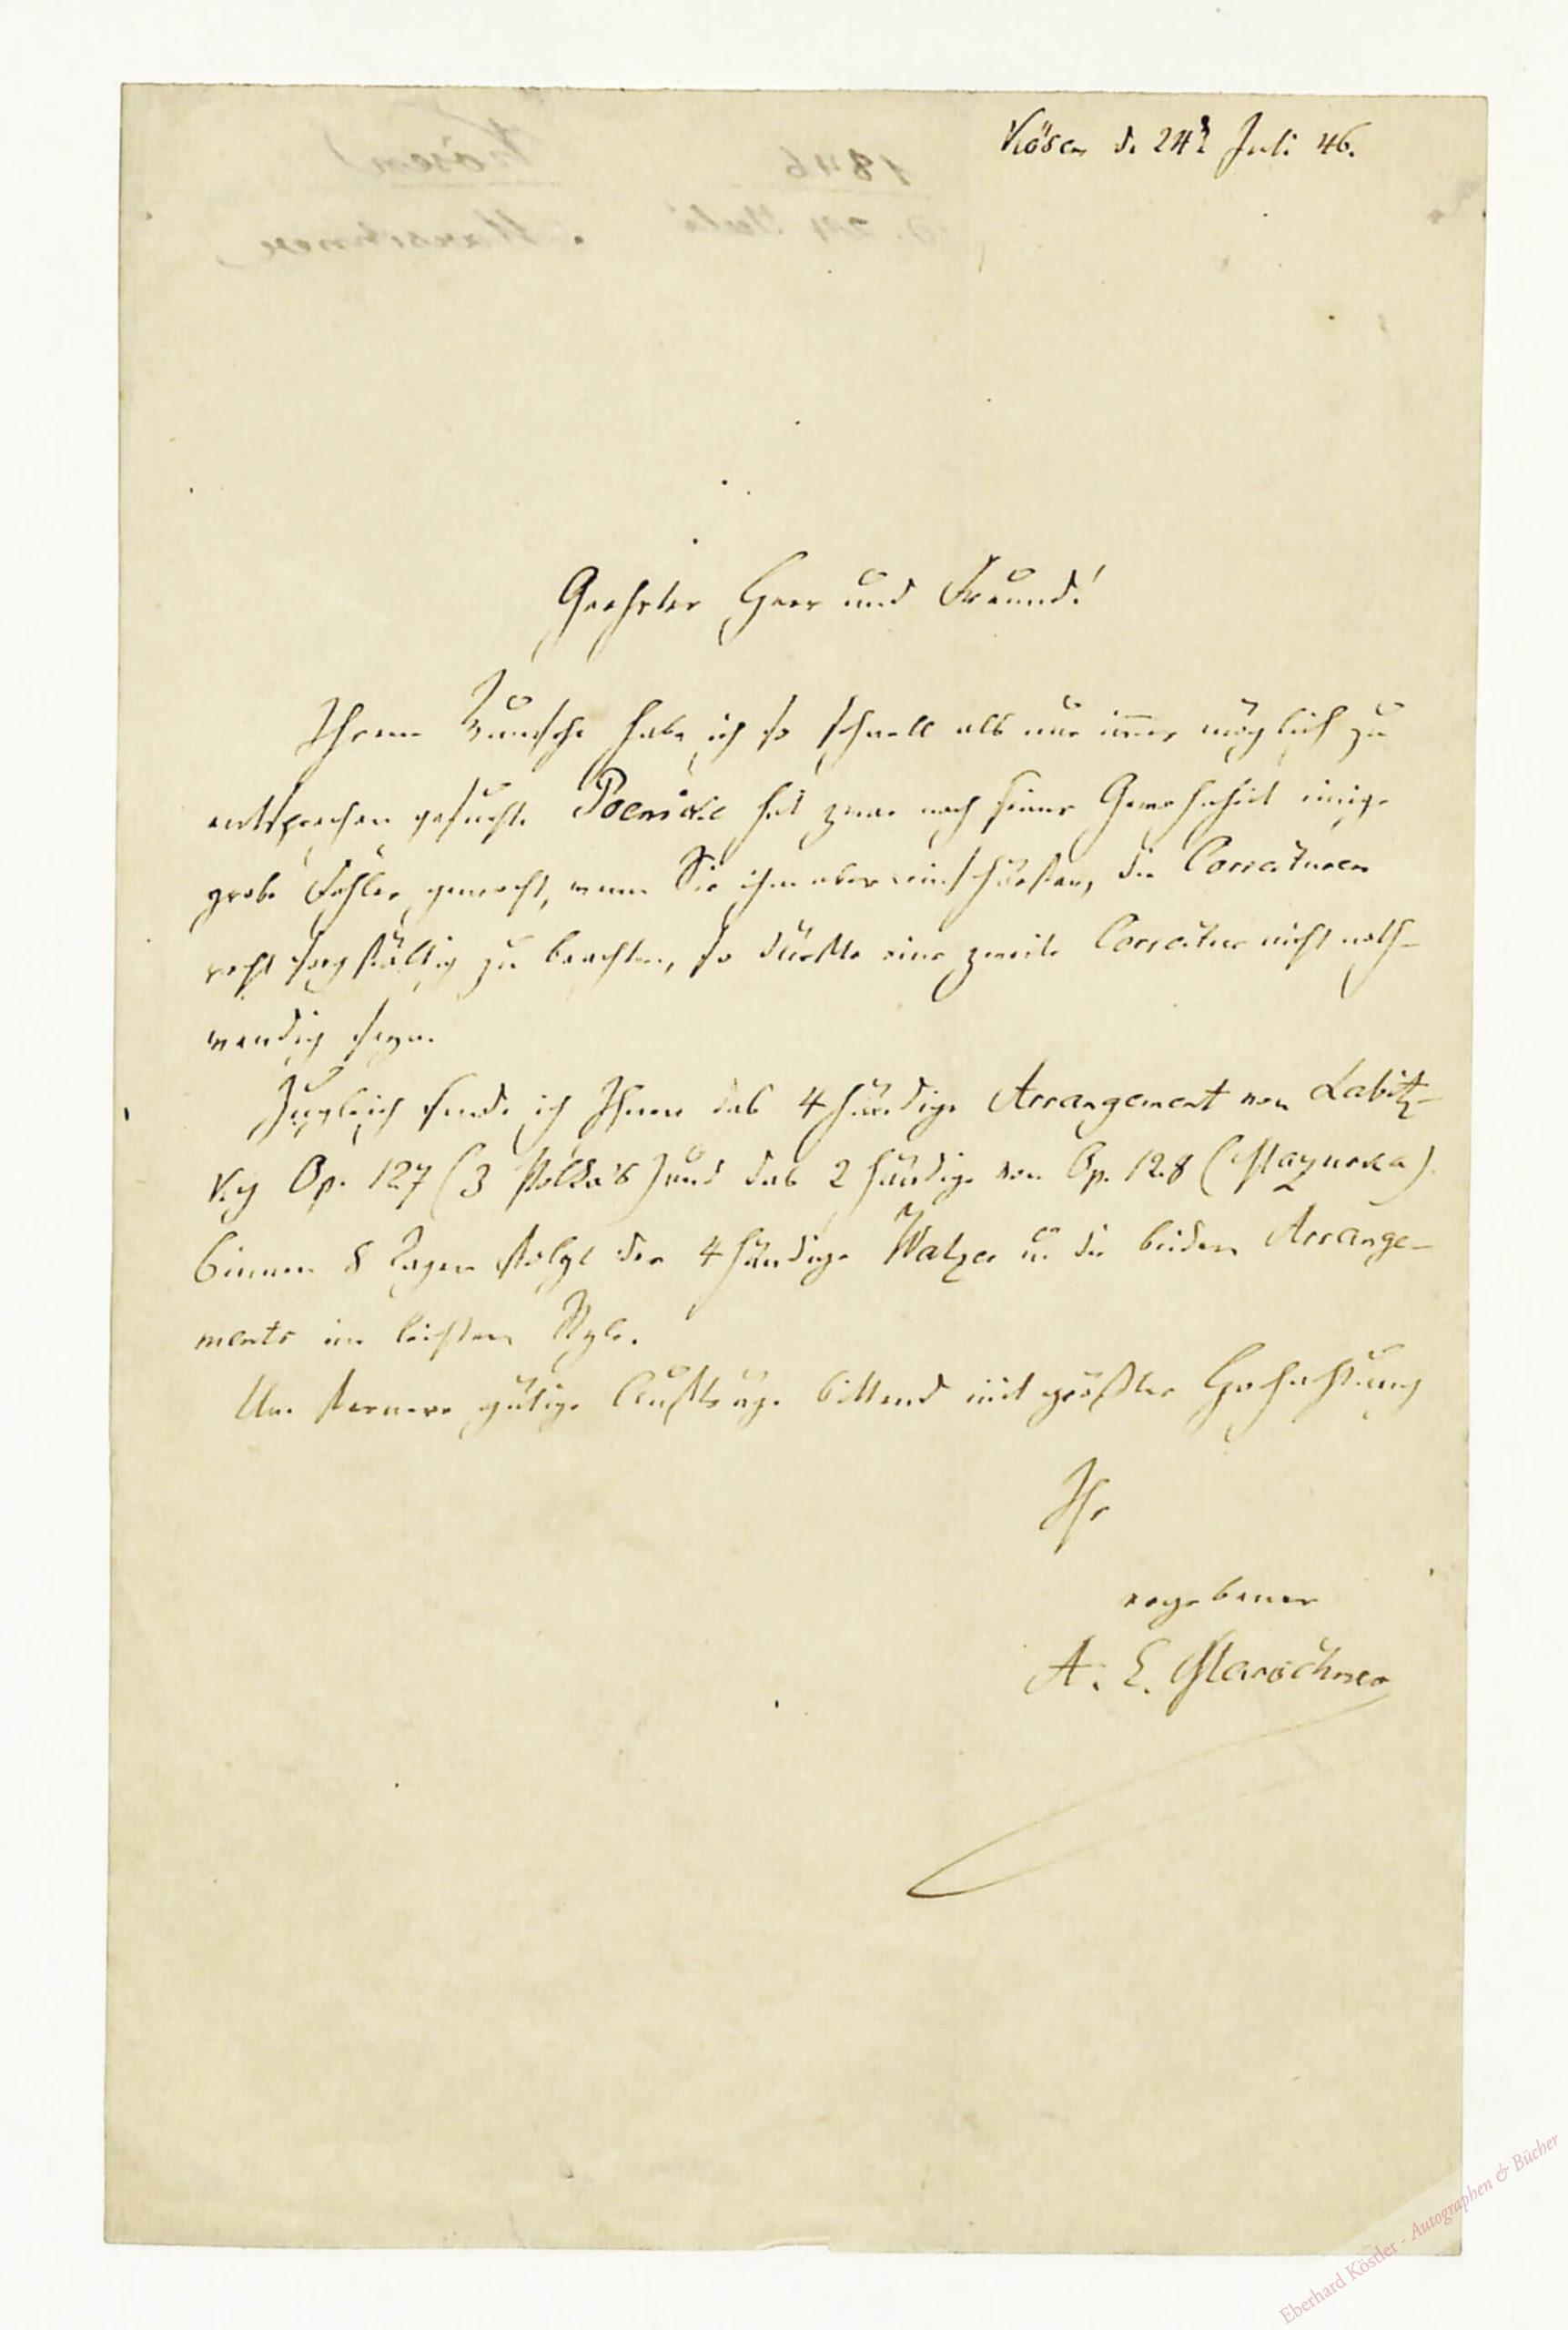 Kösen d. 24t Juli 46.
Geehrter Herr und Freund!
Ihrem Wunsche habe ich so schnell als nur immer möglich zu
entsprechen gesucht. Poenicke hat zwar nach seiner Gewohnheit einige
grobe Fehler gemacht, wenn Sie ihm aber einschärfen, die Correcturen
recht sorgfältig zu beachten, so dürfte eine zweite Correctur nicht noth-
wendig seyn.
Zugleich sende ich Ihnen das 4händige Arrangement von Labitz-
ky Op. 127 (3 Polka's) und das 2händige von Op. 128 (Mazurka).
Binnen 8 Tagen folgt der 4händige Walzer u. die beiden Arrange-
ments im leichten Style.
Um fernere gütige Aufträge bittend mit größter Hochachtung
Ihr
ergebener
A. E. Marschner
1846 Kösen
d. 24 Juli Marschner
Eberhard Köstler - Autographen & Bücher